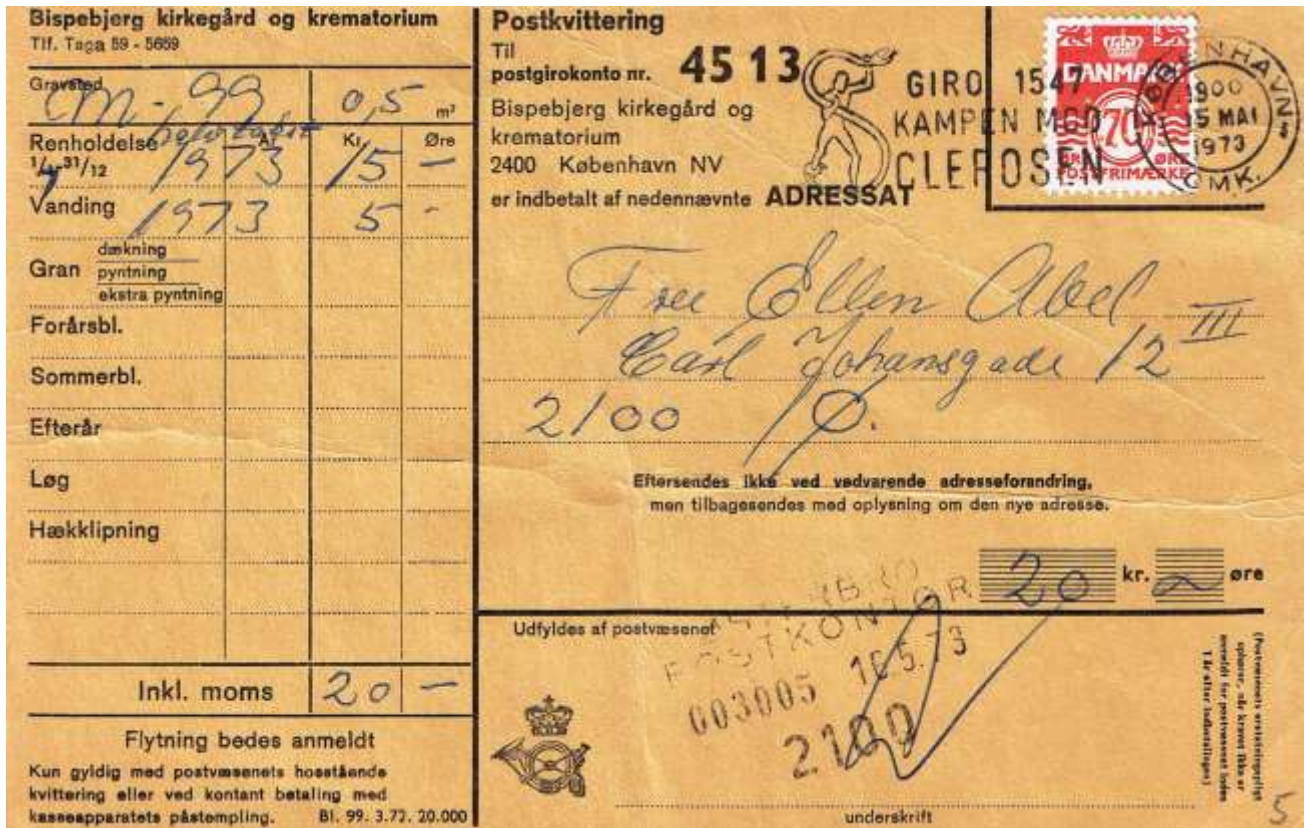 Bispebjerg kirkegård og krematorium
Tlf. Taga 59 - 5659
Gravsted
M-99 0,5 m²
Renholdelse Kr. Øre
1/4-31/12 1973 15 –
Vanding 1973 5 -
Gran dækning
pyntning
ekstra pyntning
Forårsbl.
Sommerbl.
Efterår
Løg
Hækklipning
Inkl. moms 20 –
Flytning bedes anmeldt
Kun gyldig med postvæsenets hosstående
kvittering eller ved kontant betaling med
kasseapparatets påstempling. Bl. 99. 3.72. 20.000
Postkvittering
Til
postgirokonto nr. 45 13
Bispebjerg kirkegård og
krematorium
2400 København NV
er indbetalt af nedennævnte ADRESSAT
GIRO 1547
KAMPEN MOD
CLEROSEN
DANMARK
70
ØRE
POSTFRIMÆRKE
KØBENHAVN
1900
15 MAI
1973
OMK.
Fru Ellen Abel
Carl Johansgade 12 III
2100 Ø.
Eftersendes ikke ved vedvarende adresseforandring,
men tilbagesendes med oplysning om den nye adresse.
20 kr. øre
Udfyldes af postvæsenet
POSTKONTOR
003005 16.5.73
2100
underskrift
(Postvæsenets erstatningspligt
ophører, når kravet ikke er
anmeldt for postvæsenet inden
1 år efter indbetalingen)
5